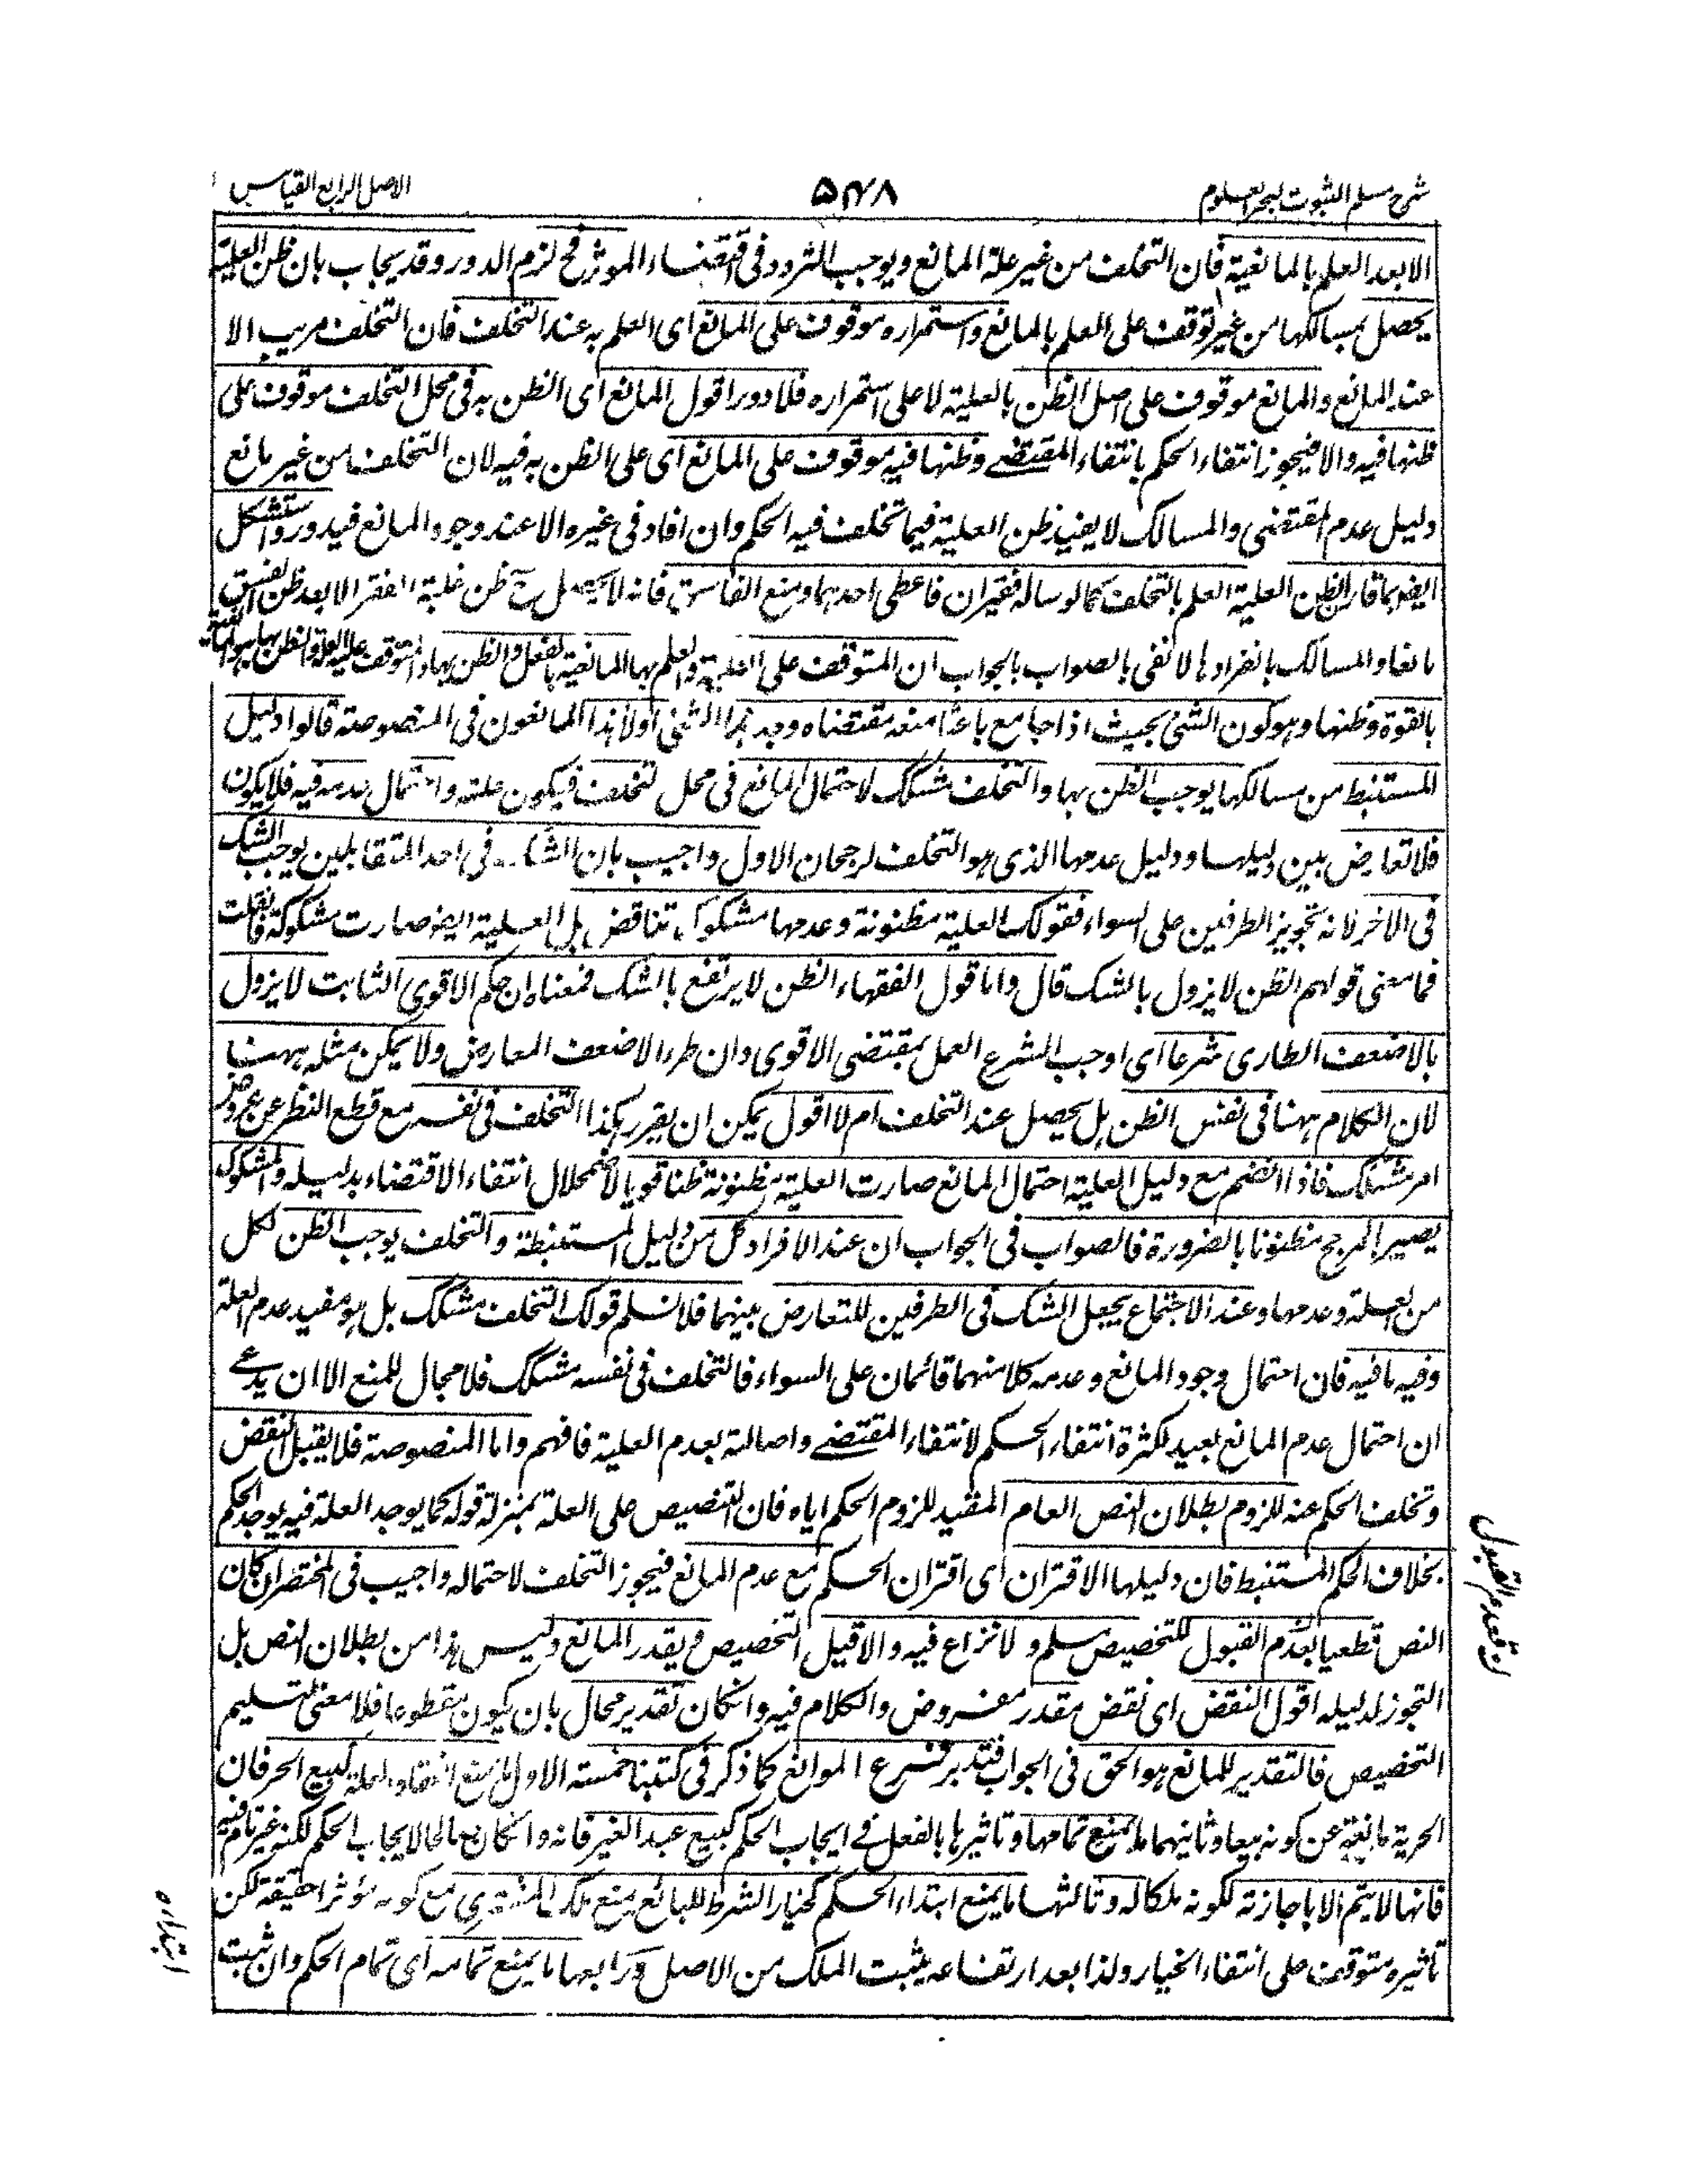 شرح مسلم الثبوت لبحر العلوم
٥٣٨
الاصل الرابع القياس
الا بعد العلم بالمانعية فان التخلف من غير علة المانع ويوجب التردد فى اقتضاء الموثر فح لزم الدور وقد يجاب بان ظن العلية
يحصل بمسالكها من غير توقف على العلم بالمانع واستمراره موقوف على المانع اى العلم به عند التخلف فان التخلف مريب الا
عند المانع والمانع موقوف على اصل الظن بالعلية لا على استمراره فلا دور اقول المانع اى الظن به فى محل التخلف موقوف على
ظنها فيه والا فيجوز انتفاء الحكم بانتفاء المقتضے وظنها فيه موقوف على المانع اى على الظن به فيه لان التخلف من غير مانع
دليل عدم المقتضى والمسالك لا يفيد ظن العلية فيما تخلف فيه الحكم وان افاد فى غيره الا عند وجود المانع فيدور واستشكل
ايضا بما قارن ظن العلية العلم بالتخلف كما لو ساله فقيران فاعطى احدهما ومنع الفاسق فانه لا يحصل ح ظن غلبة الفقر الا بعد ظن الفسق
مانعا والمسالك بانفرادها لا تفى بالصواب بالجواب ان المتوقف على العلية والعلم بها المانعية بالفعل والظن بها والمتوقف عليه العلية والظن بها هو المانعية
بالقوة وظنها وهو كون الشئ بحيث اذا جامع باعثا منعه مقتضاه وجد هذا الشئ اولا هذا المانعون فى المنصوصة قالوا دليل
المستنبط من مسالكها يوجب الظن بها والتخلف مشكك لاحتمال المانع فى محل التخلف فيكون علته واحتمال عدمه فيه فلا يكون
فلا تعارض بين دليلها ودليل عدمها الذى هو التخلف لرجحان الاول واجيب بان الشك فى احد المتقابلين يوجب الشك
فى الاخر لانه تجويز الطرفين على السواء فقولك العلية مظنونة وعدمها مشكوك تناقض بل العلية ايضا صارت مشكوكة فان قلت
فما معنى قولهم الظن لا يزول بالشك قال واما قول الفقهاء الظن لا يرتفع بالشك فمعناه ان حكم الاقوى الثابت لا يزول
بالاضعف الطارى شرعا اى اوجب الشرع العمل بمقتضى الاقوى وان طرء الاضعف المعارض ولا يمكن مثله ههنا
لان الكلام ههنا فى نفس الظن هل يحصل عند التخلف ام لا اقول يمكن ان يقرر هكذا التخلف فى نفسه مع قطع النظر عن عروض
امر مشكك فاذا انضم مع دليل العلية احتمال المانع صارت العلية مظنونة ظنا قويا لاضمحلال انتفاء الاقتضاء بدليله والمشكوك
يصير المرجح مظنونا بالضرورة فالصواب فى الجواب ان عند الافراد كل من دليل المستنبطة والتخلف يوجب الظن لكل
من العلة وعدمها وعند الاجتماع يحصل الشك فى الطرفين للتعارض بينهما فلا نسلم قولك التخلف مشكك بل هو مفيد عدم العلة
وفيه ما فيه فان احتمال وجود المانع وعدمه كلا منهما قائمان على السواء فالتخلف فى نفسه مشكك فلا مجال للمنع الا ان يدعے
ان احتمال عدم المانع بعيد لكثرة انتفاء الحكم لانتفاء المقتضے واصالته بعدم العلية فافهم واما المنصوصة فلا يقبل النقض
وتخلف الحكم عنه للزوم بطلان النص العام المفيد للزوم الحكم اياه فان التنصيص على العلة بمنزلة قوله كلما يوجد العلة فيه يوجد الحكم
بخلاف الحكم المستنبط فان دليلها الاقتران اى اقتران الحكم مع عدم المانع فيجوز التخلف لاحتماله واجيب فى المختصر ان كان
النص قطعيا بعدم القبول للتخصيص مسلم ولا نزاع فيه والا قبل التخصيص ويقدر المانع وليس هذا من بطلان النص بل
التجوز لدليله اقول النقض اى نقض مقدر مفروض والكلام فيه وانكان تقدير محال بان يكون مقطوعا فلا معنى لتسليم
التخصيص فالتقدير للمانع هو الحق فى الجواب فتدبر تسرع الموانع كما ذكر فى كتبنا خمسة الاول ما يمنع انعقاد العلة كبيع الحر فان
الحرية مانعة عن كونه بيعا وثانيهما ما يمنع تمامها وتاثيرها بالفعل فے ايجاب الحكم كبيع عبد الغير فانه وانكان صالحا لايجاب الحكم لكنه غير تام فيه
فانها لا يتم الا باجازته لكونه ملكا له وثالثها ما يمنع ابتداء الحكم كخيار الشرط للبائع يمنع ملك المشترى مع كونه مؤثرا حقيقة لكن
تاثيره متوقف على انتفاء الخيار ولذا بعد ارتفاعه يثبت الملك من الاصل ورابعها ما يمنع تمامه اى تمام الحكم وان ثبت
ابتداءه